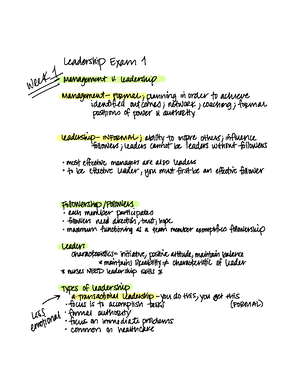 Leadership Exam 1
Week 1
Management vs leadership
Management - FORMAL; planning in order to achieve
identified outcomes; network; coaching; formal
positions of power & authority
Leadership - INFORMAL; ability to inspire others; influence
followers; leaders cannot be leaders without followers
• most effective managers are also leaders
• to be effective leader, you must first be an effective follower
Followership/Followers
• each member participates
• followers need direction, trust, hope
• maximum functioning as a team member exemplifies followership
Leaders
characteristics = initiative, positive attitude, maintain balance
* maintains flexibility = characteristic of leader
* nurses NEED leadership skills *
Types of leadership
* a transactional leadership - you do this, you get this
• focus is to accomplish tasks (FORMAL)
• formal authority
• focus on immediate problems
• common in healthcare
Less emotional